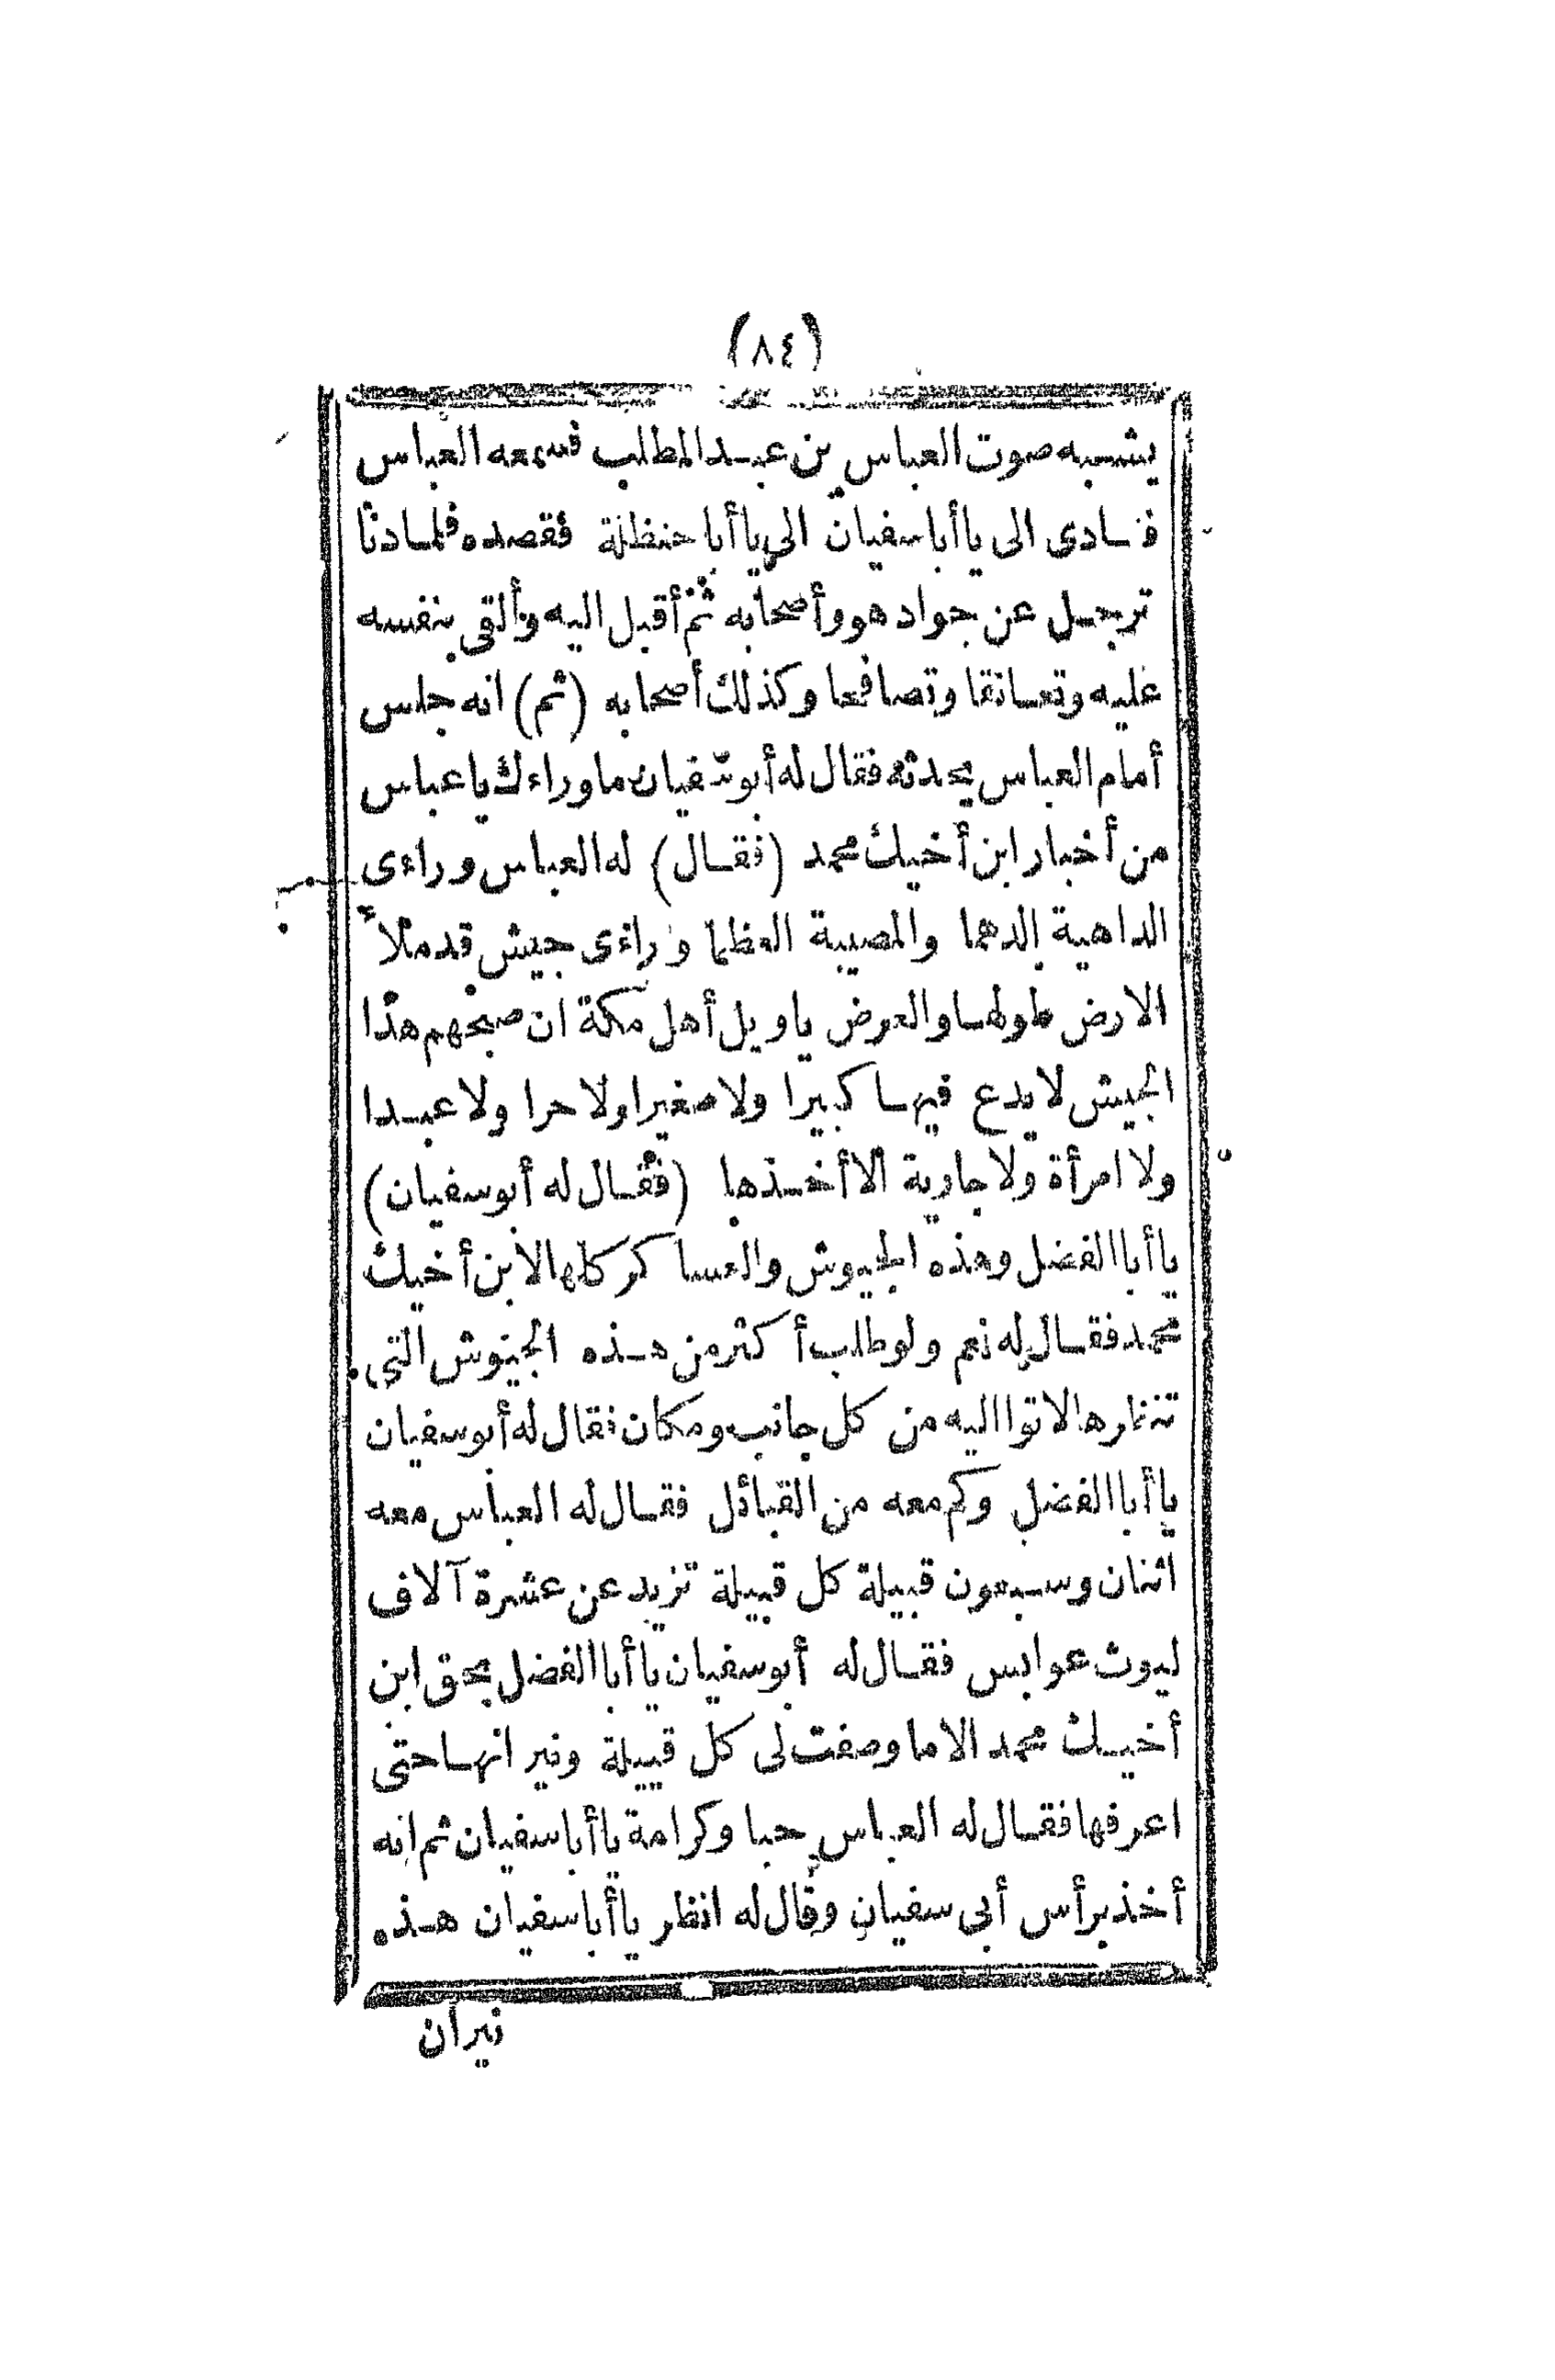 (٨٤)
يشبه صوت العباس بن عبد المطلب فسمعه العباس
فنادى الى يا أبا سفيان الى يا أبا حنظلة فقصده فلما دنا
ترجل عن جواده هو وأصحابه ثم أقبل اليه وألقى بنفسه
عليه وتعانقا وتصافحا وكذلك أصحابه (ثم) انه جلس
أمام العباس يحدثه فقال له أبو سفيان ما وراءك يا عباس
من أخبار ابن أخيك محمد (فقال) له العباس وراءى
الداهية الدهما والمصيبة العظما وراءى جيش قد ملأ
الارض طولها والعرض يا ويل أهل مكة ان صبحهم هذا
الجيش لا يدع فيها كبيرا ولا صغيرا ولا حرا ولا عبدا
ولا امرأة ولا جارية الا أخذها (فقال له أبو سفيان)
يا أبا الفضل وهذه الجيوش والعساكر كلها لابن أخيك
محمد فقال له نعم ولو طلب أكثر من هذه الجيوش التى
تنظرها لاتوا اليه من كل جانب ومكان فقال له أبو سفيان
يا أبا الفضل وكم معه من القبائل فقال له العباس معه
اثنان وسبعون قبيلة كل قبيلة تزيد عن عشرة آلاف
ليوث عوابس فقال له أبو سفيان يا أبا الفضل بحق ابن
أخيك محمد الا ما وصفت لى كل قبيلة ونيرانها حتى
اعرفها فقال له العباس حبا وكرامة يا أبا سفيان ثم انه
أخذ برأس أبى سفيان وقال له انظر يا أبا سفيان هذه
نيران